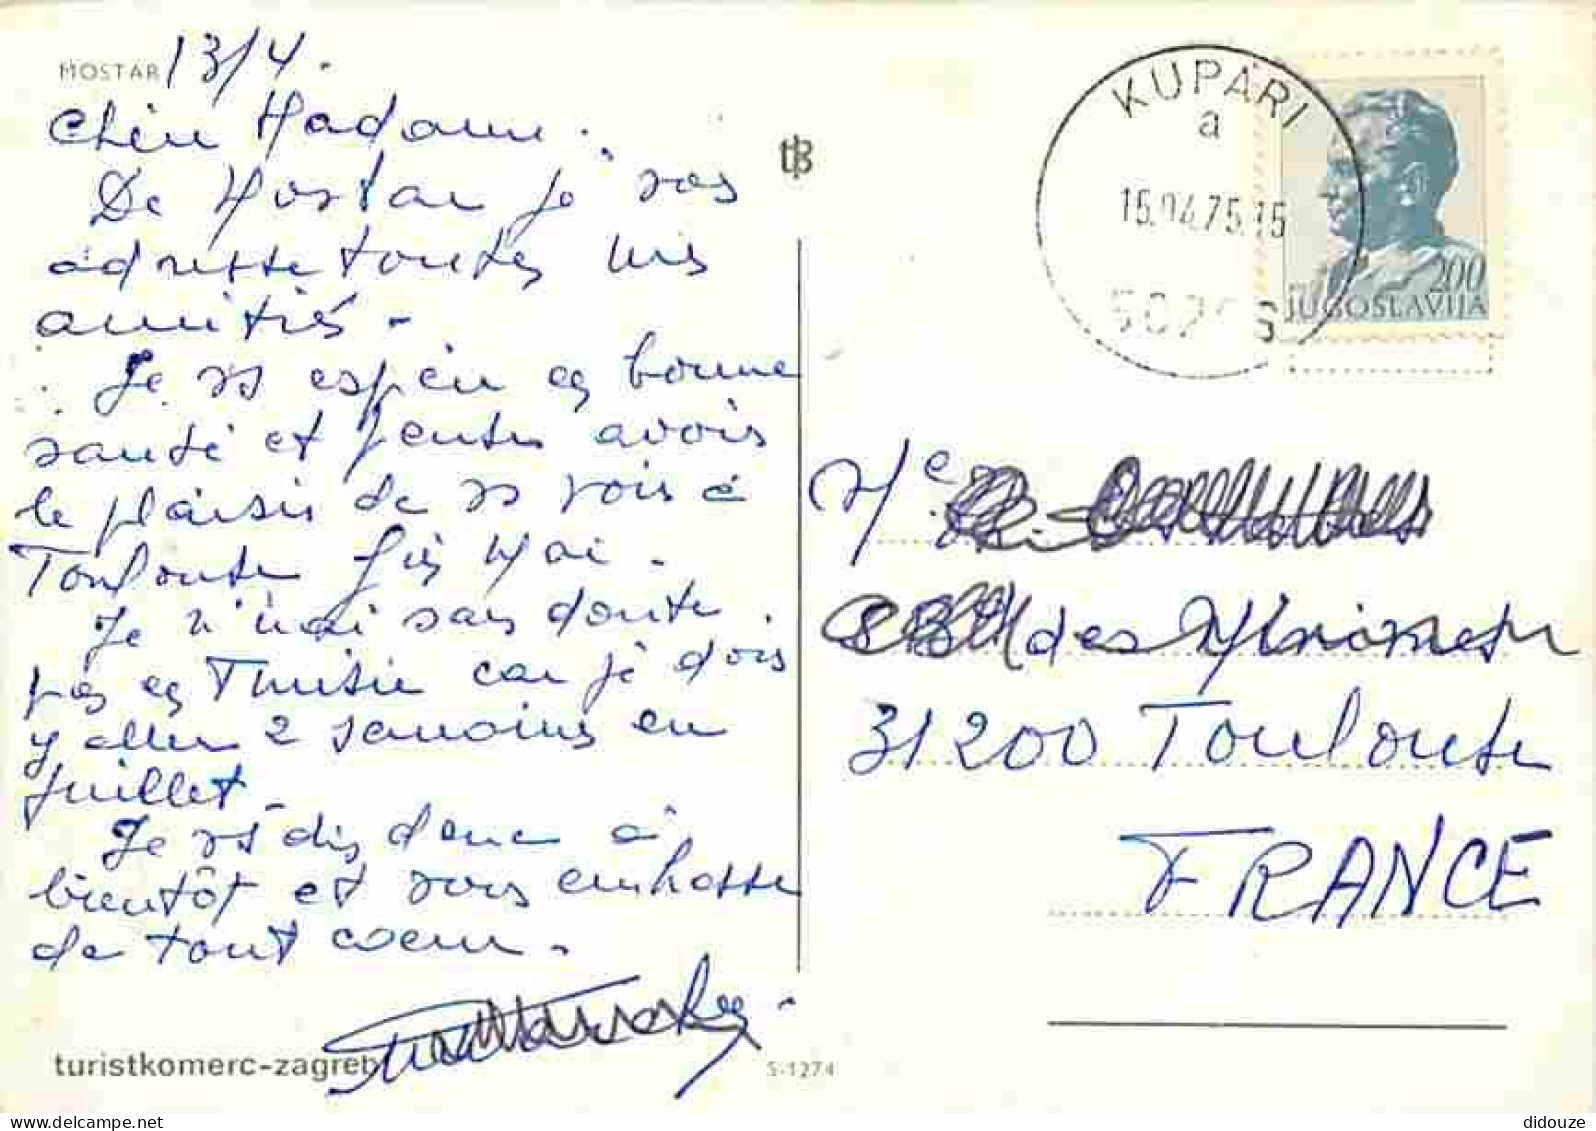 MOSTAR 13/4.
Chère Madame.
De Mostar je vous
adresse toutes mes
amitiés -
Je vs espère en bonne
santé et pense avoir
le plaisir de vs voir à
Toulouse fin Mai.
Je n'irai sans doute
pas en Tunisie car je dois
y aller 2 semaines en
juillet.
Je vs dis donc à
bientôt et vous embrasse
de tout coeur.
turistkomerc-zagreb
S-1274
tz
KUPARI
a
15.04.75.15
200
JUGOSLAVIJA
Me
des Minimes
31200 Toulouse
FRANCE
didouze